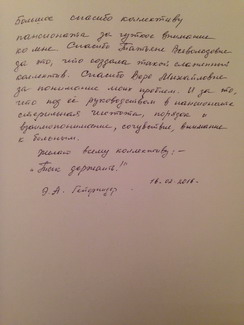 Большое спасибо коллективу
пансионата за чуткое внимание
ко мне. Спасибо Татьяне Всеволодовне
за то, что создала такой слаженный
коллектив. Спасибо Вере Михайловне
за понимание моих проблем. И за то,
что под её руководством в пансионате
стерильная чистота, порядок и
взаимопонимание, сочувствие, внимание
к больным.
Желаю всему коллективу: –
„Так держать!!"
16.02.2016.